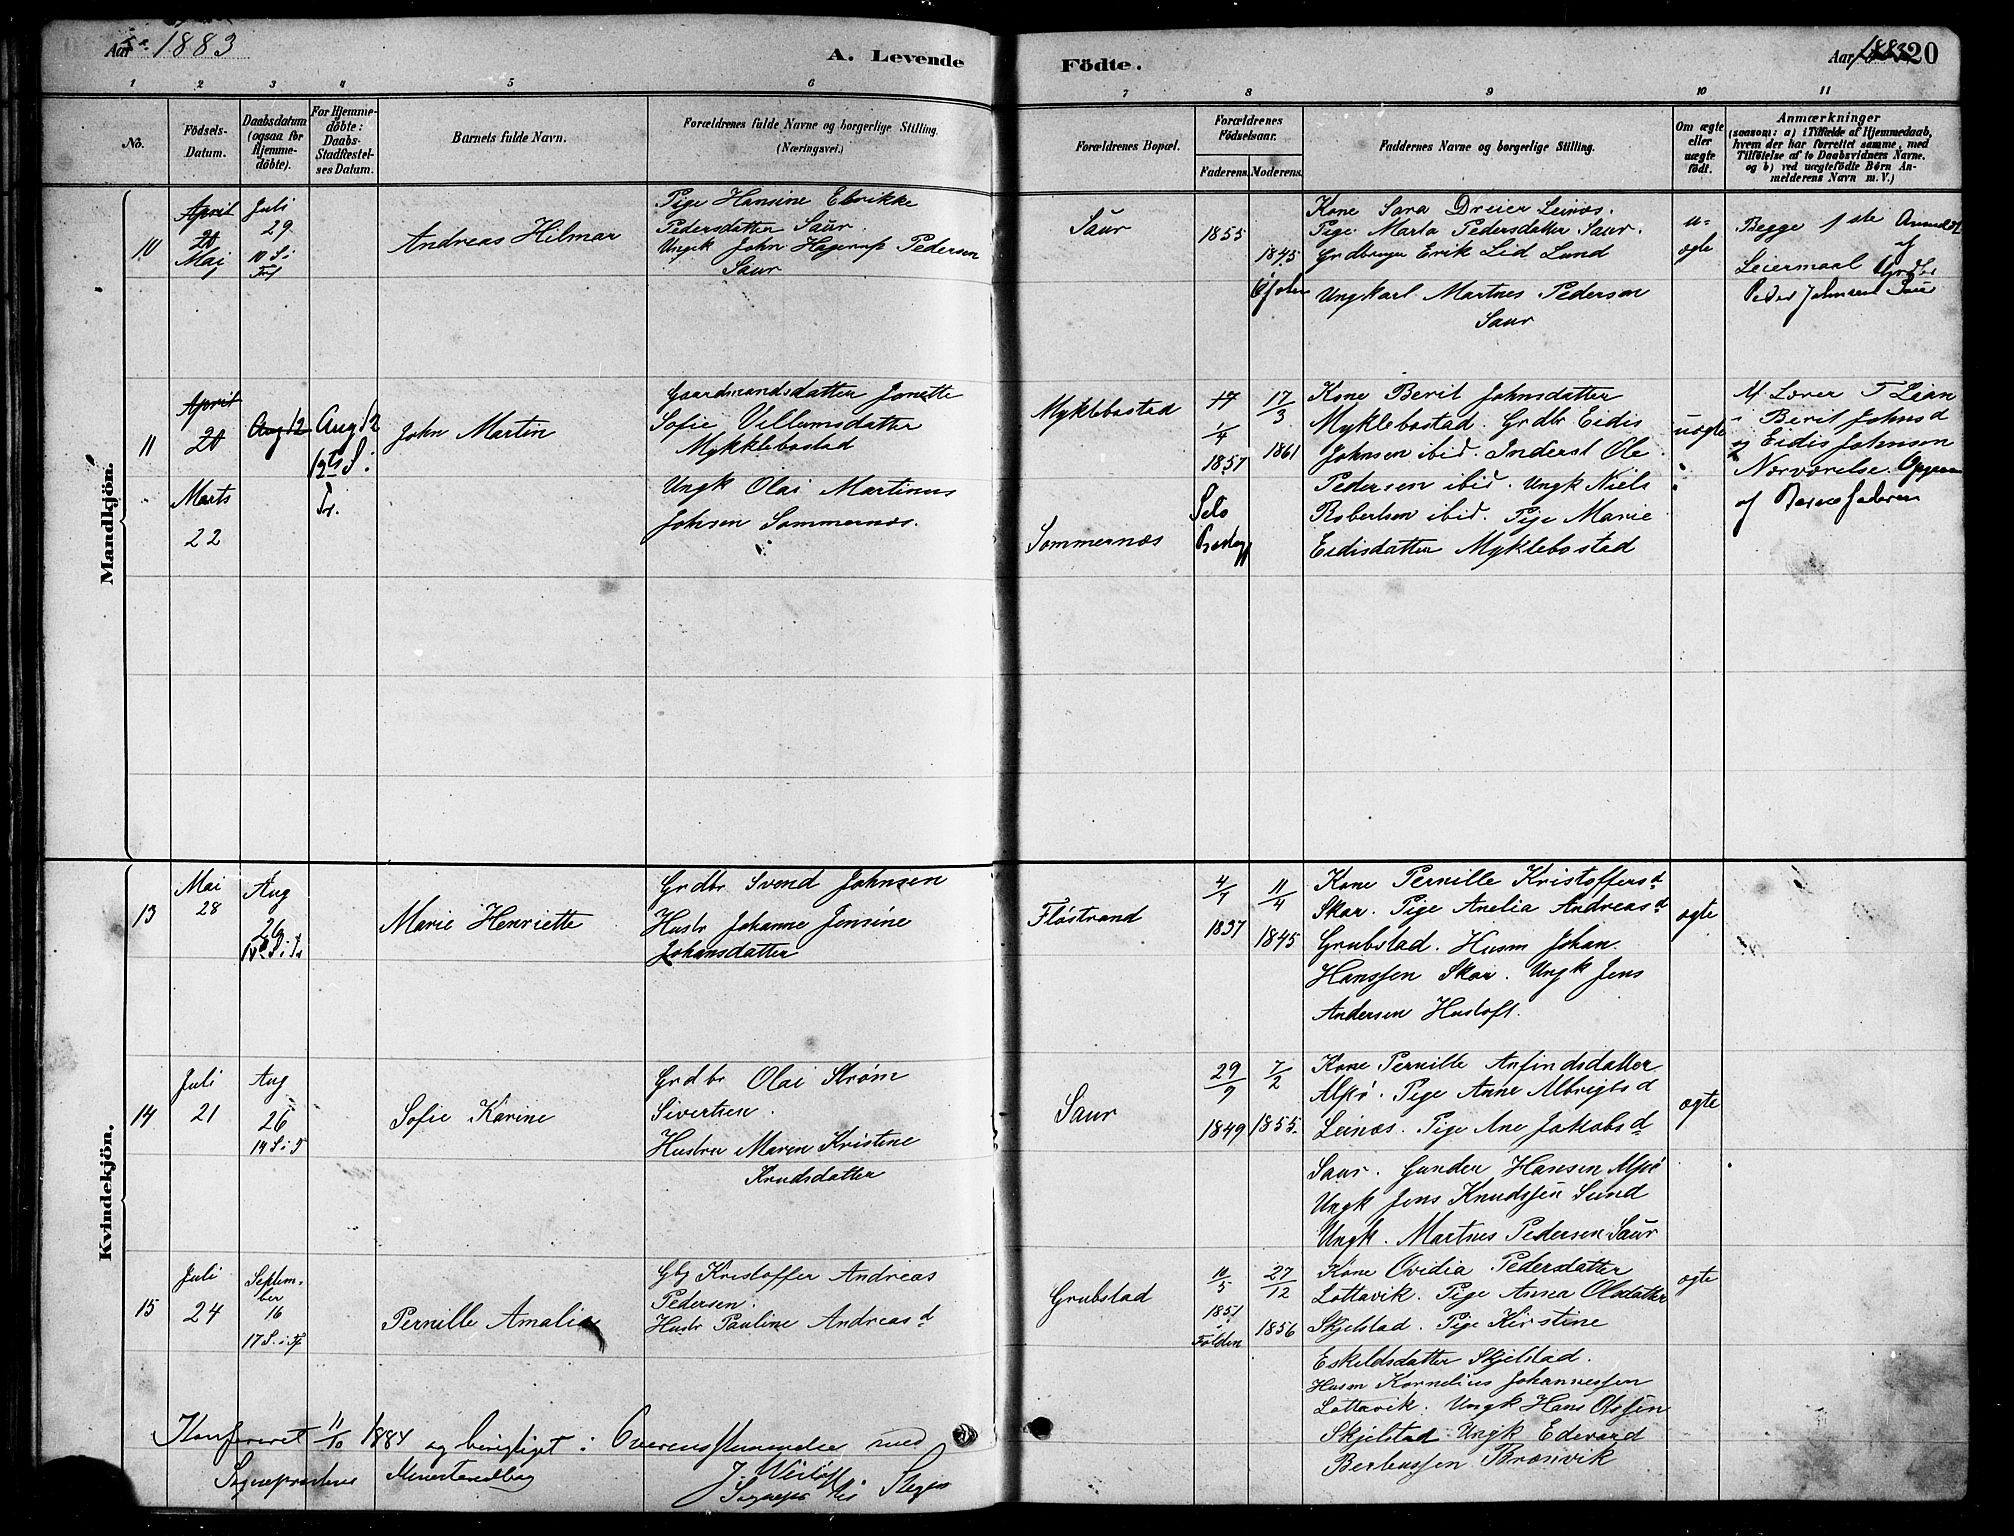 Aar 1883
A. Levende Födte.
Aar 1883 20
1 2 3 4 5 6 7 8 9 10 11
No.
Födsels-Datum.
Daabsdatum (ogsaa for Hjemme-döbte).
For Hjemme-döbte: Daabs-Stadfæstel-ses Datum.
Barnets fulde Navn.
Forældrenes fulde Navne og borgerlige Stilling.
(Næringsvei.)
Forældrenes Bopæl.
Forældrenes Födselsaar.
Faderens. Moderens.
Faddernes Navne og borgerlige Stilling.
Om ægte eller uægte födt.
Anmærkninger
(saasom: a) i Tilfælde af Hjemmedaab,
hvem der har forrettet samme, med
Tilföielse af to Daabsvidners Navne.
og b) ved uægtefödte Börn An-
melderens Navn m. V.)
Mandkjön.
10
April
20
Mai
1
Juli
29
10 S i
Andreas Hilmar
Pige Hansine
Pedersdatter Saur.
Ungk John Hagerup Pedersen
Saur
Saur
1855
1845
Kone Sara Dreier Leinæs.
Pige Marta Pedersdatter Saur.
Grdbruger Erik Lid Lund
Ungkarl Martnes Pedersen
Saur
u-
ægte
Begge 1ste
Leiermaal
Peder Johnsen Saur
11
April
20
Marts
22
Aug 12
Aug 12
12te S i
Tr.
John Martin
Gaardmandsdatter Jonette
Sofie Villumsdatter
Mykklebostad
Ungk Olai Martinus
Johsen Sommernæs.
Myklebostad
Sommernæs
17
1/4
1857
17/3
1861
Kone Berit Johnsdatter
Myklebostad. Grdbr Eidis
Johnsen ibid. Inderst Ole
Pedersen ibid. Ungk Niels
Robertsen ibid. Pige Marie
Eidisdatter Myklebostad
uægte
Af Lærer T Lian
i Berit Johnsd
og Eidis Johnsen
Nærværelse.
af Barnefaderen
Kvindekjön.
13
Mai
28
Aug
26
Marie Henriette
Grdbr Svend Johnsen
Hustr Johanne Jensine
Johansdatter
Fløstrand
4/7
1837
11/4
1845
Kone Pernille Kristoffersd
Skar. Pige Anelia Andreasd
Grubstad. Husm Johan
Hanssen Skar. Ungk Jens
Andersen Hustoft.
ægte
14
Juli
21
Aug
26
14 S i T
Sofie Karine
Grdbr Olai Strøm
Sivertsen.
Hustru Maren Kristine
Knudsdatter
Saur
29/9
1849
7/2
1855.
Kone Pernille Anfindsdatter
Alpø. Pige Anne Albrigtsd
Leinæs. Pige Ane Jakobsd
Saur. Gunder Hansen Alpø
Ungk Jens Knudssen Sund
Ungk. Martnes Pedersen Saur
ægte
15
Juli
24
Septem-
ber
16
17 S. i Tr
Pernille Amalia
Gbg Kristoffer Andreas
Pedersen.
Hustr Pauline Andreasd
Grubstad
10/5
1851
i
Folden
27/12
1856
Kone Ovidia Pedersdatter
Lottavik. Pige Anna Olsdatter
Skjelstad. Pige Kirstine
Eskildsdatter Skjelstad.
Husm Kornelius Johannessen
Lottavik. Ungk Hans Olssen
Skjelstad Ungk Edevard
Berteussen Brænvik
ægte
Konfereret 11/10 1884 og berigtiget i Overensstemmelse med
Sognepræstens Ministerialbog